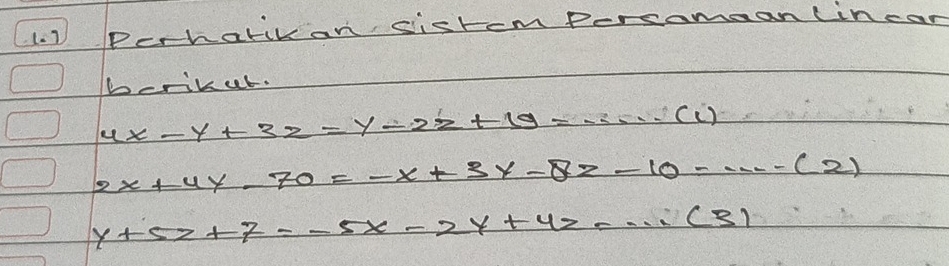 1.) Perhatikan sistem persamaan linear
berikut.
4x - y + 3z = y - 2z + 19 ...... (1)
2x + 4y - 70 = -x + 3y - 8z - 10 ..... (2)
y + 5z + 7 = -5x - 2y + 4z .... (3)